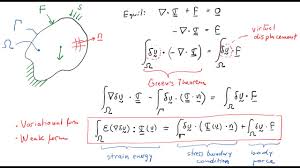 Equil: ∇·σ + F = 0
virtual displacement
∫_Ω δu · (-∇·σ) = ∫_Ω δu · F
Green's Theorem
∫_Ω ∇δu : σ - ∫_Γ δu · (σ·n) = ∫_Ω δu · F
• Variational form
• Weak form
∫_Ω ε(∇δu) : σ(u) = ∫_Γ δu · (σ(u)·n) + ∫_Ω δu · F
strain energy
stress boundary condition
body force
F
S
Γ
Ω
n